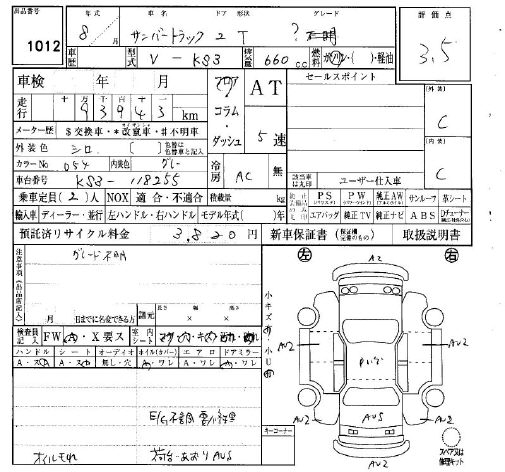 出品番号 1012
年式 8 月
車名 サンバートラック
ドア形状 2 T
グレード ? 不明
評価点 3.5
車歴
型式 V - KS3
排気量 660 cc
燃料 ガソリン・( )・軽油
車検 年 月
フロア コラム・ダッシュ
AT
5 速
セールスポイント
(外装) C
(内装) C
走行 十 万 千 百 十 9 3 9 4 3 km
メーター歴 $交換車・*改竄車・#不明車
外装色 シロ [ ] 色替は色替車と記入
カラーNo 054 内装色 グレー
冷房 AC 無
車台番号 KS3-118255
該当車は丸印 ユーザー仕入車
乗車定員(2)人 NOX 適合・不適合 積載量 kg
PS PW 純正AW サンルーフ 革シート
輸入車 ディーラー・並行 左ハンドル・右ハンドル モデル年式( )年
エアバッグ 純正TV 純正ナビ ABS
預託済リサイクル料金 3,820 円
新車保証書 取扱説明書
注意事項(出品店記入)
グレード不明
月 日までに名変できる方
諸元 長さ 幅 高さ
検査員記入 FW Ⓐ・X要ス
室内シート
ハンドル シート オーディオ ホイル(カバー) エアロ ドアミラー
A・スレ A・スレ 無し・穴 A・ワレ A・ワレ A・ワレ
オイルモレ
荷台・あおりAUS
小キズ 小U
キーコーナー
左 右
A2
AU2 AU2
AU5
AU2 AU2
スペア又は修理キット